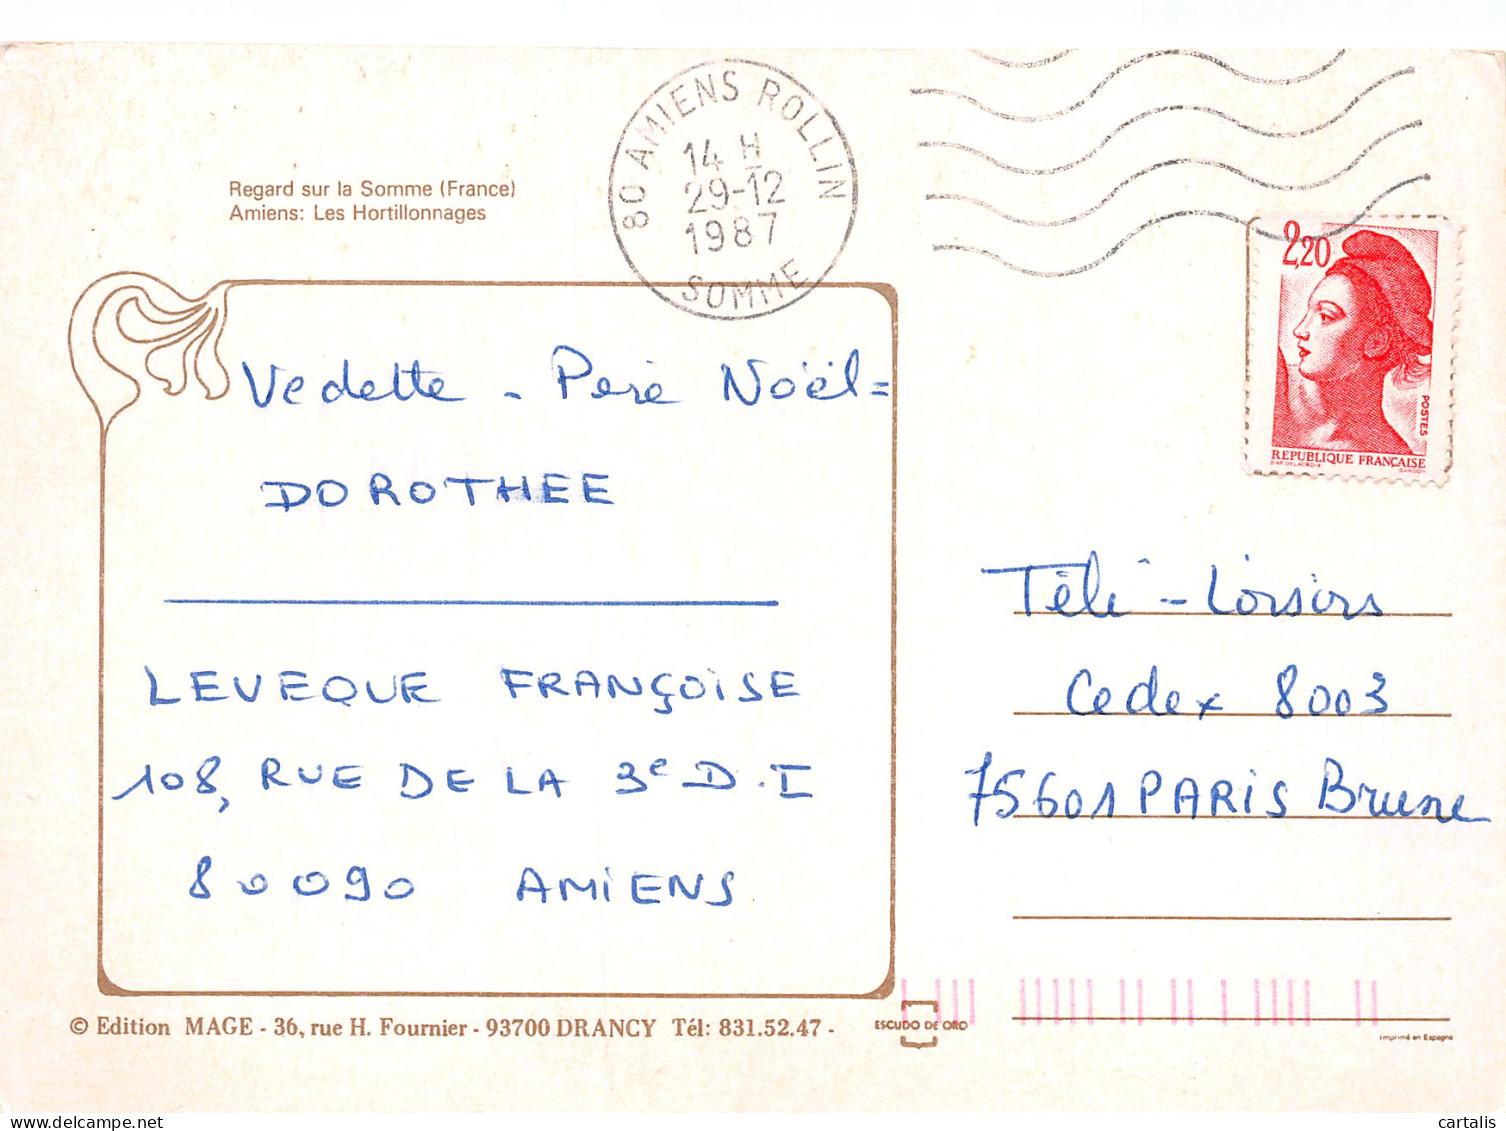 Regard sur la Somme (France)
Amiens: Les Hortillonnages
80 AMIENS ROLLIN
14 H
29-12
1987
SOMME
2,20
POSTES
REPUBLIQUE FRANÇAISE
D'AP. DELACROIX
GANDON
Vedette - Père Noël=
DOROTHEE
LEVEQUE FRANÇOISE
108, RUE DE LA 3e D.I
80090 AMIENS
Télé-Loisirs
Cedex 8003
75601 PARIS Brune
© Edition MAGE - 36, rue H. Fournier - 93700 DRANCY Tél: 831.52.47 -
ESCUDO DE ORO
Imprimé en Espagne
cartalis